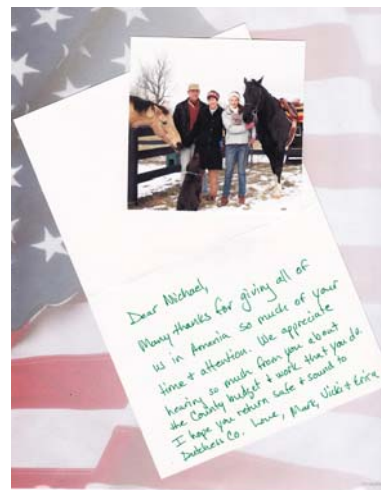 Dear Michael,
Many thanks for giving all of
us in Amenia so much of your
time + attention. We appreciate
hearing so much from you about
the County budget + work that you do.
I hope you return safe + sound to
Dutchess Co. Love, Mark, Vicki + Erica